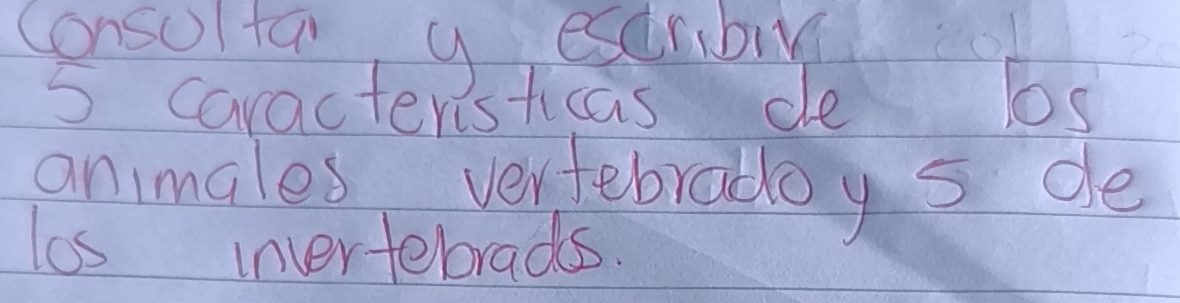 Consultar y escribir
5 caracteristicas de los
animales vertebrado y 5 de
los invertebrados.